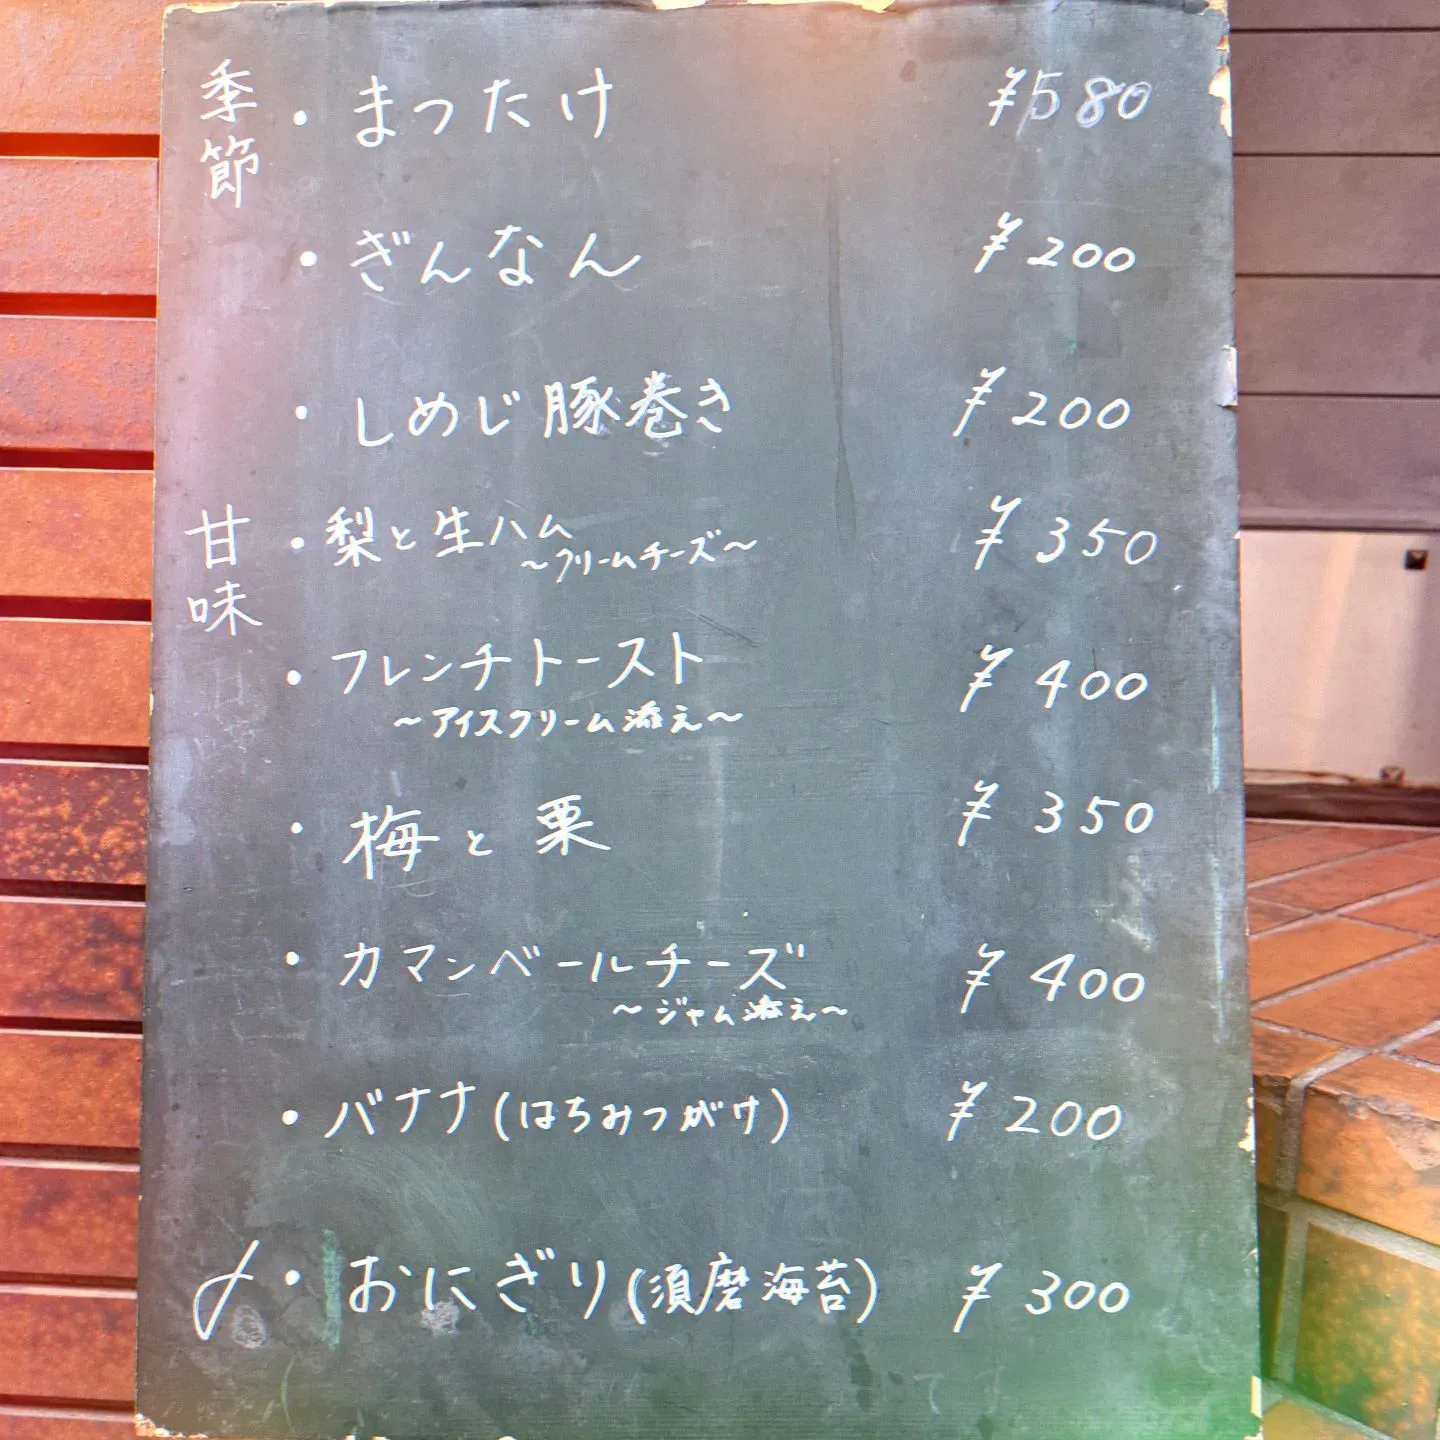 季節
・まつたけ ¥580
・ぎんなん ¥200
・しめじ豚巻き ¥200
甘味
・梨と生ハム ¥350
~クリームチーズ~
・フレンチトースト ¥400
~アイスクリーム添え~
・梅と栗 ¥350
・カマンベールチーズ ¥400
~ジャム添え~
・バナナ(はちみつがけ) ¥200
〆・おにぎり(須磨海苔) ¥300